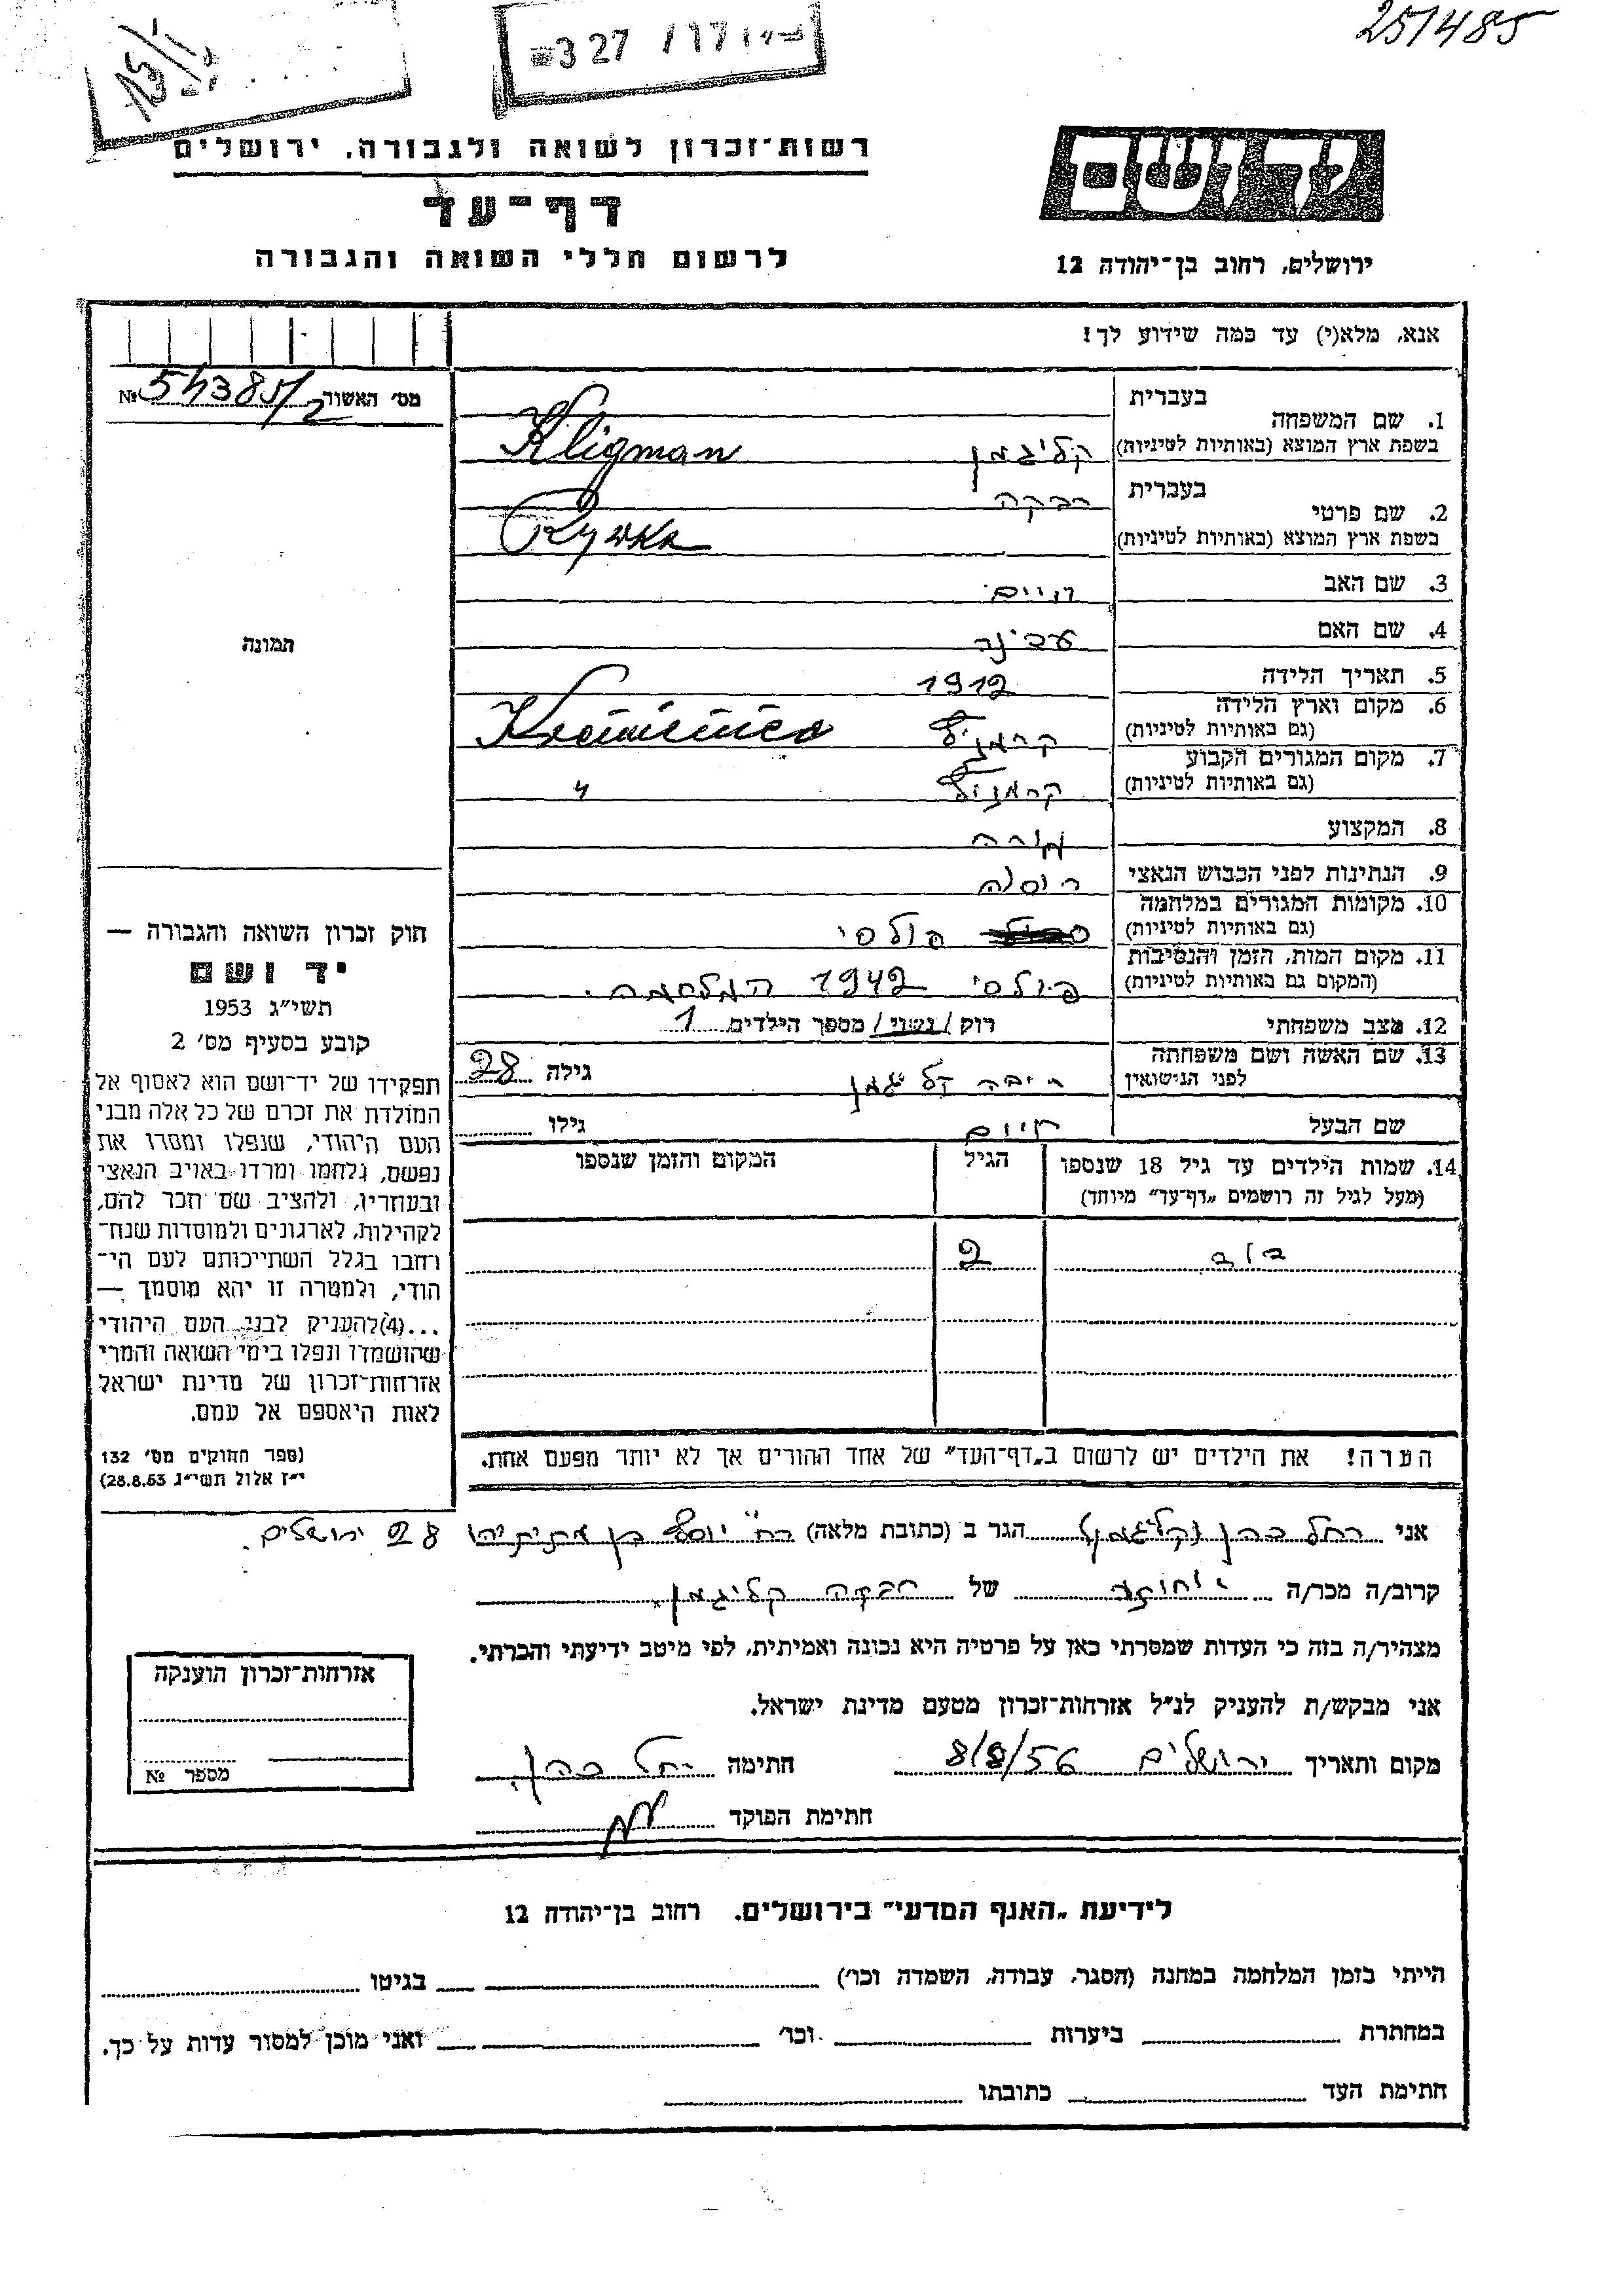 251485
327 /171
15/
רשות־זכרון לשואה ולגבורה, ירושלים
דף־עד
לרשום חללי השואה והגבורה
יד ושם
ירושלים, רחוב בן־יהודה 12
אנא, מלא(י) עד כמה שידוע לך!
מס׳ האשור № 54385/2
1. שם המשפחה
בעברית
בשפת ארץ המוצא (באותיות לטיניות) קליגמן Kligman
2. שם פרטי
בעברית רבקה
בשפת ארץ המוצא (באותיות לטיניות) Rywka
3. שם האב חיים
4. שם האם
5. תאריך הלידה 1912
6. מקום וארץ הלידה
(גם באותיות לטיניות)
7. מקום המגורים הקבוע
(גם באותיות לטיניות) "
8. המקצוע מורה
9. הנתינות לפני הכבוש הנאצי
10. מקומות המגורים במלחמה
(גם באותיות לטיניות)
11. מקום המות, הזמן והנסיבות
(המקום גם באותיות לטיניות) 1942 המלחמה.
12. מצב משפחתי רווק / נשוי / מספר הילדים 1
13. שם האשה ושם משפחתה
לפני הנישואין קליגמן גילה 28
שם הבעל חיים גילו
14. שמות הילדים עד גיל 18 שנספו
(מעל לגיל זה רושמים „דף־עד״ מיוחד)
הגיל
המקום והזמן שנספו
2
הערה! את הילדים יש לרשום ב„דף־העד״ של אחד ההורים אך לא יותר מפעם אחת.
תמונה
חוק זכרון השואה והגבורה —
יד ושם
תשי״ג 1953
קובע בסעיף מס׳ 2
תפקידו של יד־ושם הוא לאסוף אל
המולדת את זכרם של כל אלה מבני
העם היהודי, שנפלו ומסרו את
נפשם, נלחמו ומרדו באויב הנאצי
ובעוזריו, ולהציב שם וזכר להם,
לקהילות, לארגונים ולמוסדות שנח־
רבו בגלל השתייכותם לעם הי־
הודי, ולמטרה זו יהא מוסמך —
...(4) להעניק לבני העם היהודי
שהושמדו ונפלו בימי השואה והמרי
אזרחות־זכרון של מדינת ישראל
לאות היאספם אל עמם.
(ספר החוקים מס׳ 132
י״ז אלול תשי״ג 28.8.53)
אני רחל כהן (קליגמן) הגר ב (כתובת מלאה) רח׳ יוסף בן מתיתיהו 28 ירושלים.
קרוב/ה מכר/ה של רבקה קליגמן
מצהיר/ה בזה כי העדות שמסרתי כאן על פרטיה היא נכונה ואמיתית, לפי מיטב ידיעתי והכרתי.
אני מבקש/ת להעניק לנ״ל אזרחות־זכרון מטעם מדינת ישראל.
מקום ותאריך ירושלים 8/8/56 חתימה רחל כהן
חתימת הפוקד
אזרחות־זכרון הוענקה
מספר №
לידיעת „האגף המדעי״ בירושלים. רחוב בן־יהודה 12
הייתי בזמן המלחמה במחנה (הסגר, עבודה, השמדה וכו׳) בגיטו
במחתרת ביערות וכו׳ ואני מוכן למסור עדות על כך.
חתימת העד כתובתו